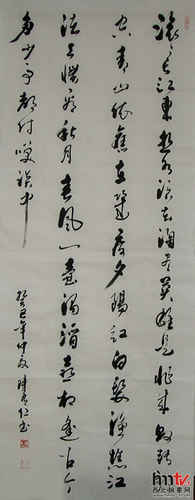 滚滚长江东逝水浪花淘尽英雄是非成败转头
空青山依旧在几度夕阳红白发渔樵江
渚上惯看秋月春风一壶浊酒喜相逢古今
多少事都付笑谈中
癸巳年仲夏